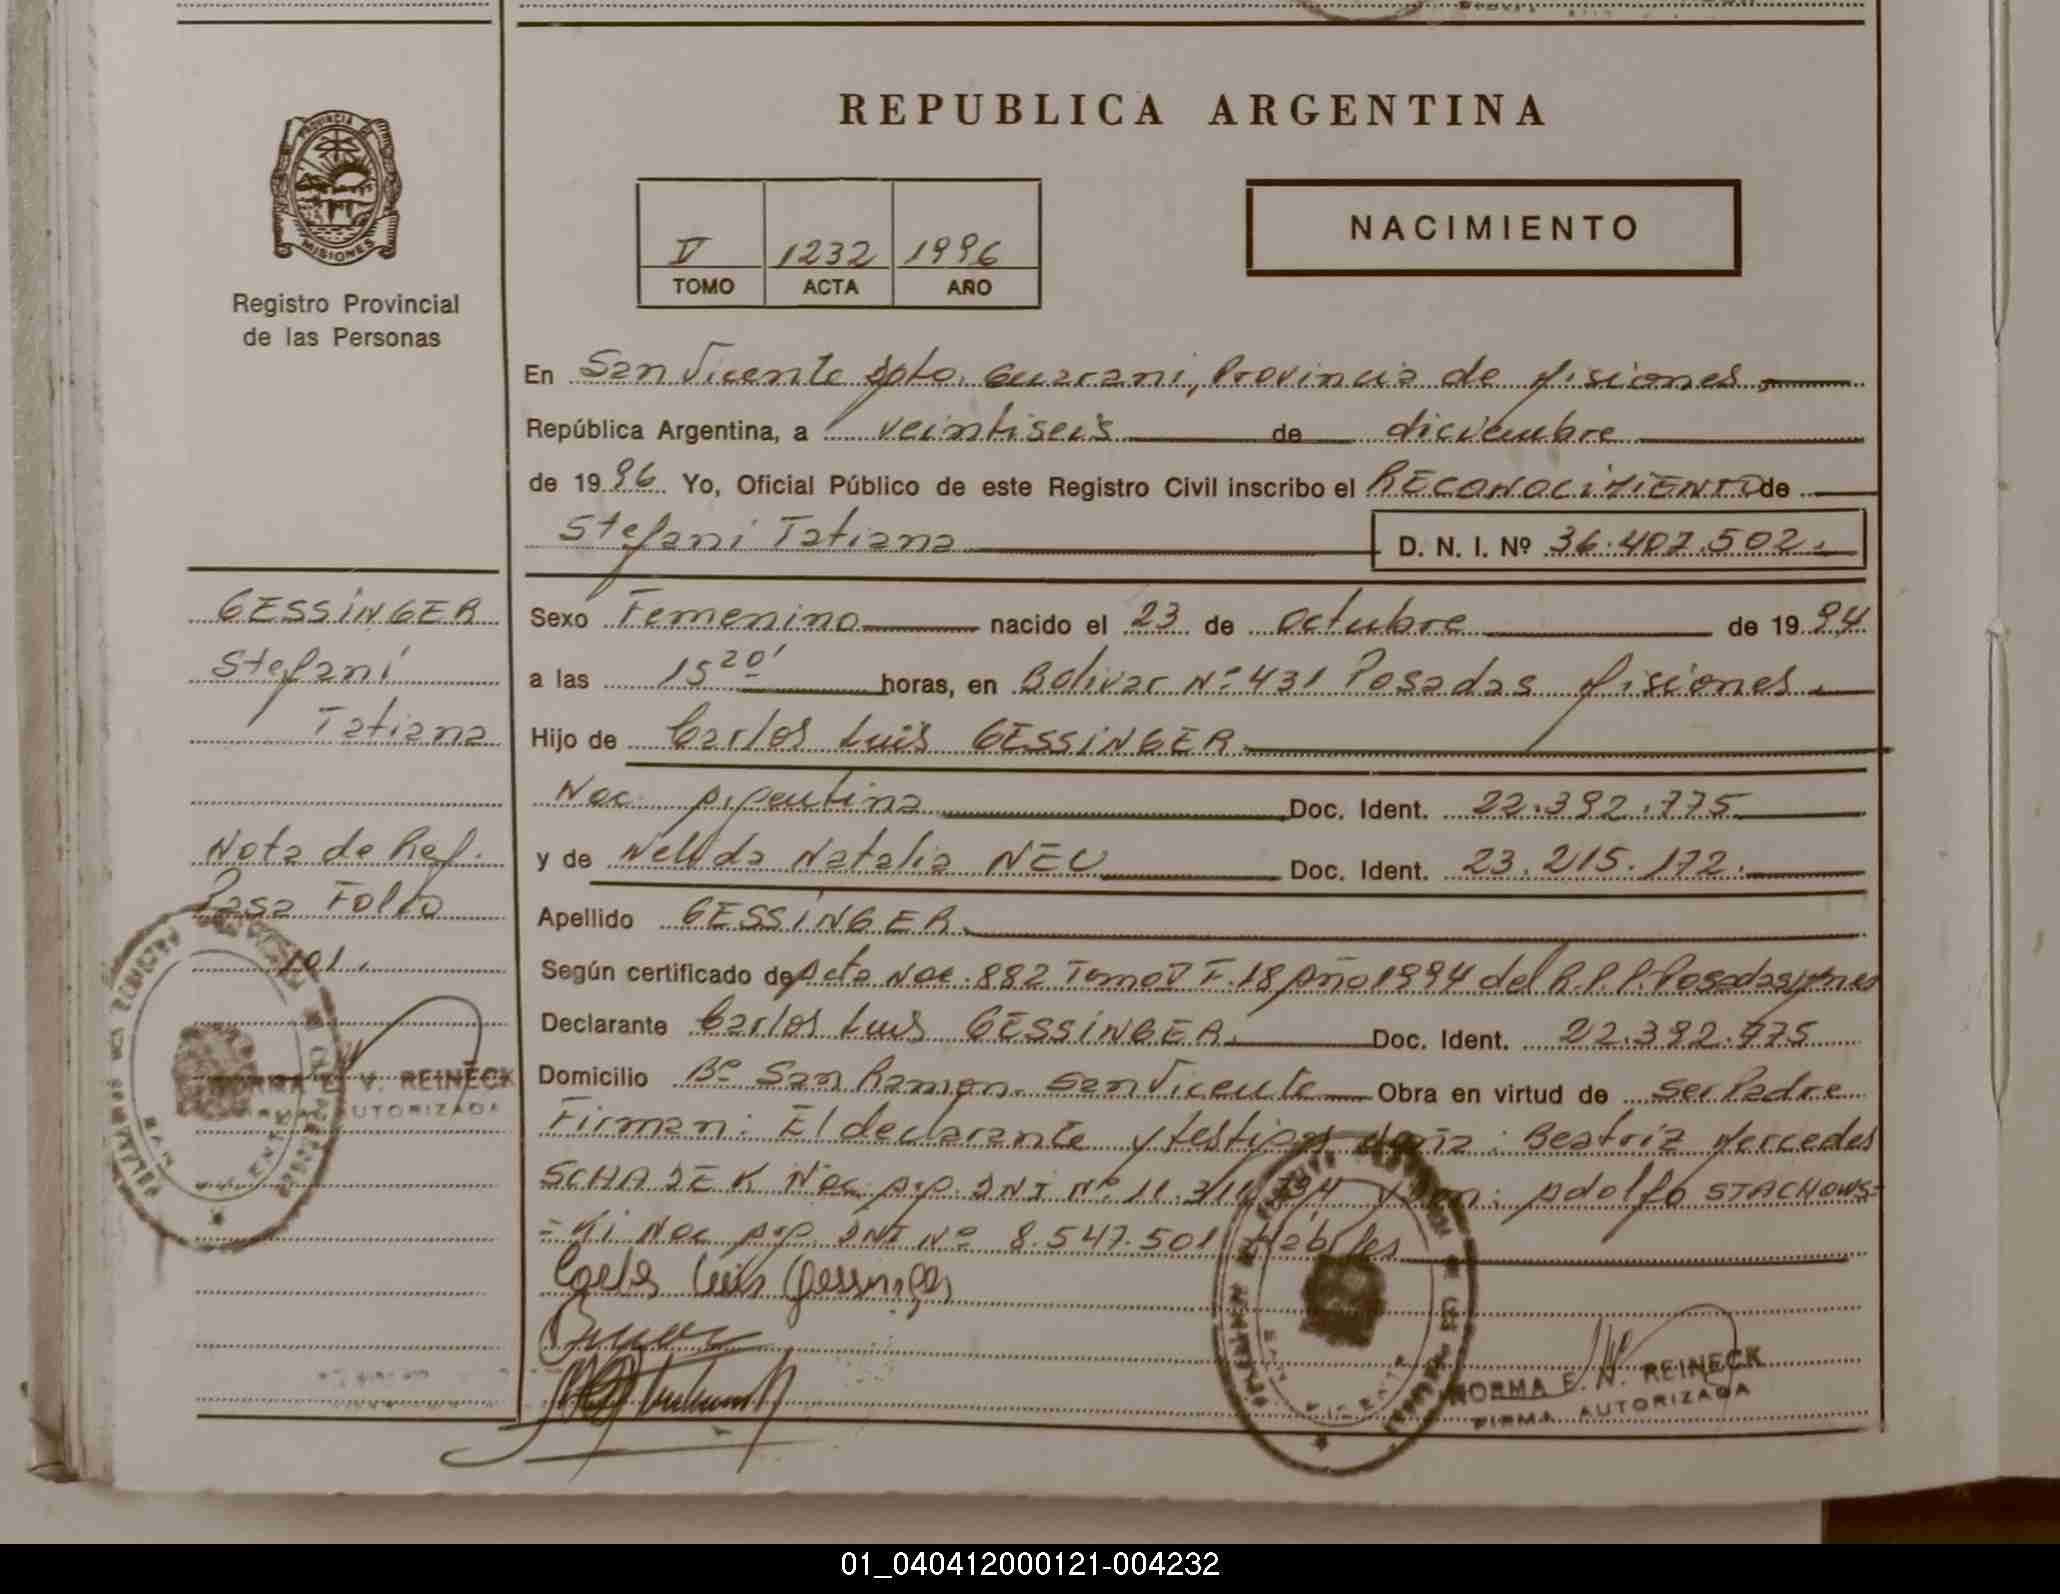 REPUBLICA ARGENTINA
PROVINCIA DE
MISIONES
Registro Provincial
de las Personas
V 1232 1996
TOMO ACTA AÑO
NACIMIENTO
En San Vicente Dpto. Guarani, Provincia de Misiones
República Argentina, a veintiseis de diciembre
de 1996 Yo, Oficial Público de este Registro Civil inscribo el RECONOCIMIENTO de
Stefani Tatiana D. N. I. Nº 36.407.502.
GESSINGER
Stefani
Tatiana
Nota de Ref.
Pasa Folio
101.
NORMA E. V. REINECK
AUTORIZADA
Sexo Femenino nacido el 23 de octubre de 1994
a las 15 20' horas, en Bolivar Nº 431 Posadas Misiones
Hijo de Carlos Luis GESSINGER
Nac. Argentina Doc. Ident. 22.392.775
y de Nelida Natalia NEU Doc. Ident. 23.215.172.
Apellido GESSINGER
Según certificado de Acta Nac. 882 Tomo V F. 18 Año 1994 del R.P.P. Posadas
Declarante Carlos Luis GESSINGER. Doc. Ident. 22.392.775
Domicilio Bº San Ramon. San Vicente Obra en virtud de ser Padre
Firman: El declarante y testigos Beatriz Mercedes
SCHADEK Nac. Arg. DNI Nº 11. Adolfo STACHOWS=
=Ki Nac Arg. DNI Nº 8.547.501 Hábiles
Carlos Luis Gessinger
NORMA E. V. REINECK
FIRMA AUTORIZADA
01_040412000121-004232